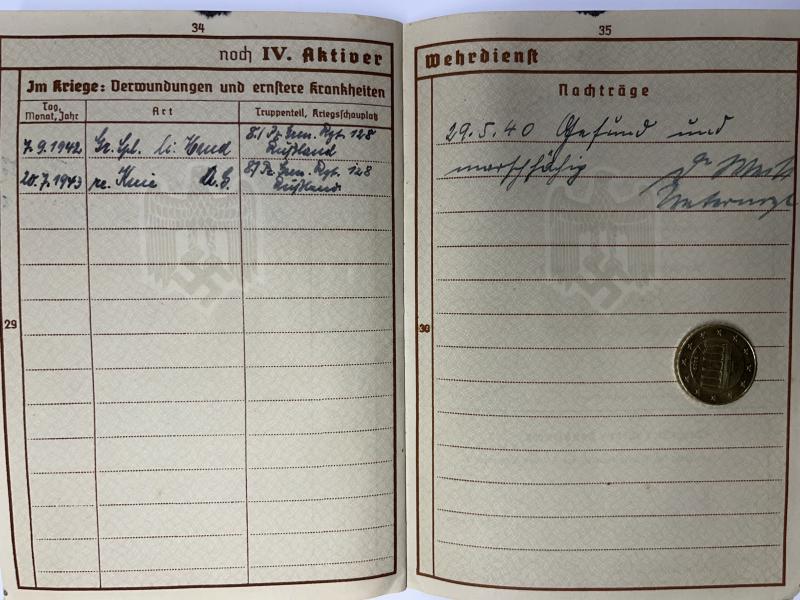 34
noch IV. Aktiver
Im Kriege: Verwundungen und ernstere Krankheiten
Tag, Monat, Jahr
Art
Truppenteil, Kriegsschauplatz
7.9.1942 Gr. Spl. li. Hand 8./ Pz. Gren. Rgt. 128
Rußland
20.7.1943 re. Knie A.G. 8/ Pz. Gren. Rgt. 128
Rußland
29
35
Wehrdienst
Nachträge
29.5.40 Gesund und
marschfähig Dr
Unterarzt
30